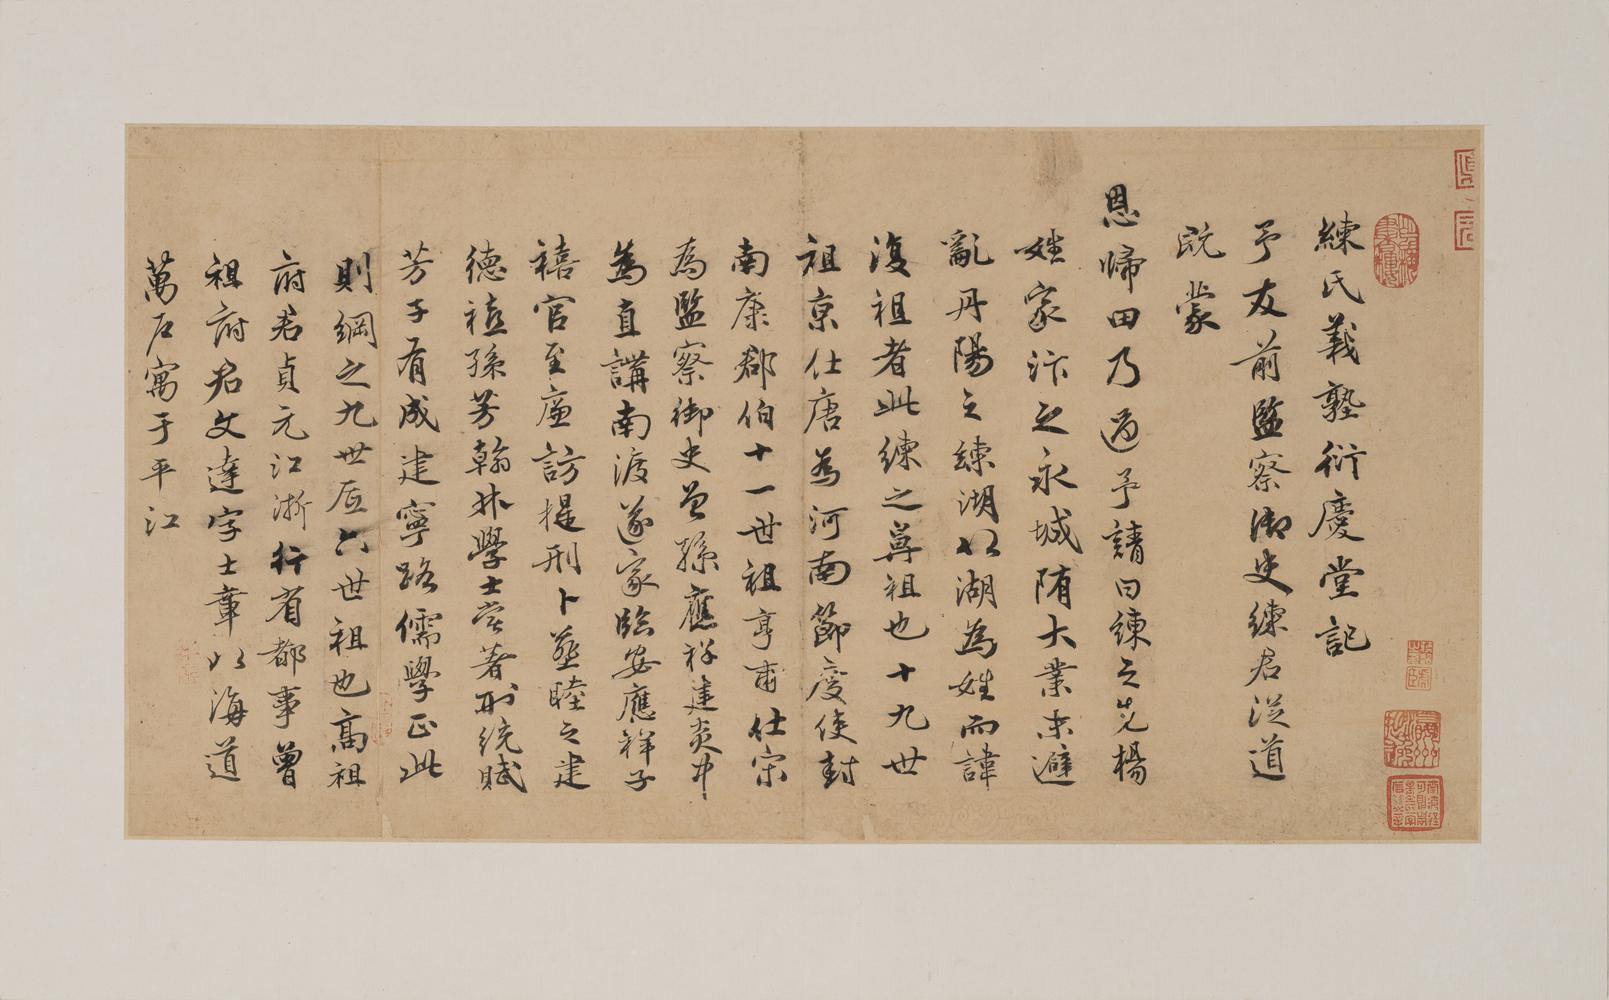 練氏義塾衍慶堂記
予友前監察御史練君從道
既蒙
恩帰田乃過予請曰練之先楊
姓家汴之永城隋大業末避
亂丹陽之練湖以湖為姓而諱
復祖者此練之鼻祖也十九世
祖京仕唐為河南節度使封
南康郡伯十一世祖亨甫仕宋
為監察御史曾孫應祥建炎中
為直講南渡遂家臨安應祥子
禧官至廉訪提刑卜葬睦之建
德禧孫芳翰林學士嘗著刑統賦
芳子有成建寧路儒學正此
則綱之九世
六世祖也高祖
府君貞元江浙行省都事曾
祖府君文達字士章以海道
萬戶寓于平江